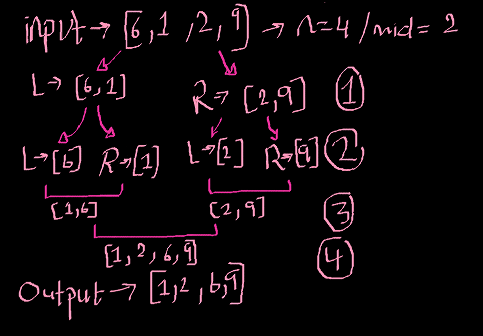 input → [6,1,2,9] → n=4 / mid= 2
L→ [6,1] R→ [2,9] 1
L→[6] R→[1] L→[2] R→[9] 2
[1,6] [2,9] 3
[1,2,6,9] 4
Output → [1,2,6,9]